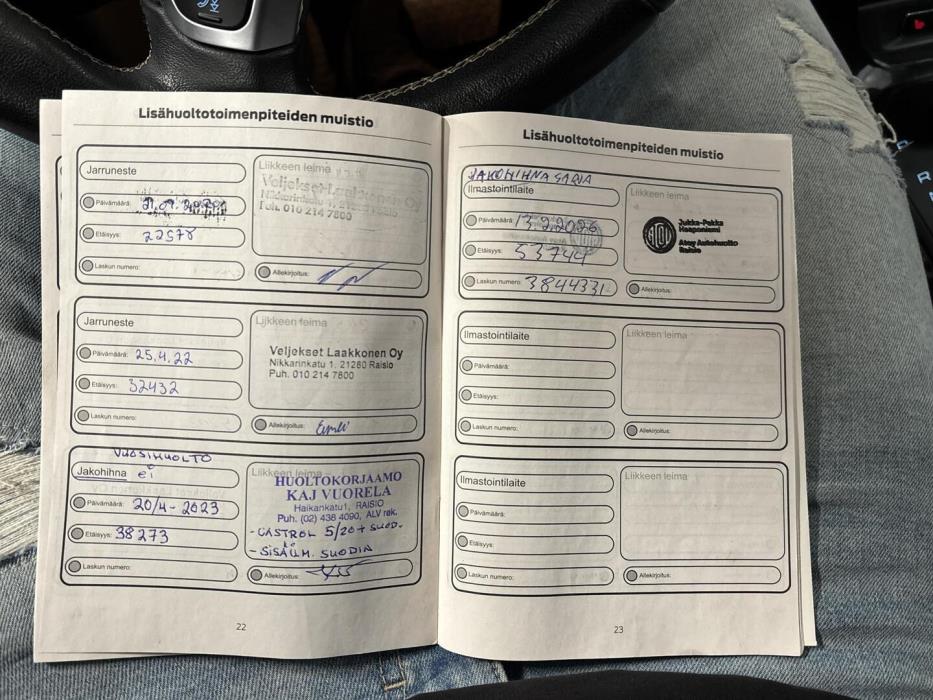 Lisähuoltotoimenpiteiden muistio
Jarruneste
Päivämäärä:
Etäisyys: 22578
Laskun numero:
Liikkeen leima
Veljekset Laakkonen Oy
Nikkarinkatu 1, 21280 Raisio
Puh. 010 214 7800
Allekirjoitus:
Jarruneste
Päivämäärä: 25.4.22
Etäisyys: 32432
Laskun numero:
Liikkeen leima
Veljekset Laakkonen Oy
Nikkarinkatu 1, 21280 Raisio
Puh. 010 214 7800
Allekirjoitus:
VUOSIHUOLTO
Jakohihna ei
Päivämäärä: 20/4-2023
Etäisyys: 38273
Laskun numero:
Liikkeen leima
HUOLTOKORJAAMO
KAJ VUORELA
Haikankatu1, RAISIO
Puh. (02) 438 4090, ALV rek.
- CASTROL 5/20 + SUOD.
- SISÄILM. SUODIN
Allekirjoitus:
22
Lisähuoltotoimenpiteiden muistio
JAKOHIHNA SARJA
Ilmastointilaite
Päivämäärä: 13.2.2026
Etäisyys: 53744
Laskun numero: 3844331
Liikkeen leima
Jukka-Pekka
Atoy Autohuolto
Raisio
Allekirjoitus:
Ilmastointilaite
Päivämäärä:
Etäisyys:
Laskun numero:
Liikkeen leima
Allekirjoitus:
Ilmastointilaite
Päivämäärä:
Etäisyys:
Laskun numero:
Liikkeen leima
Allekirjoitus:
23
R